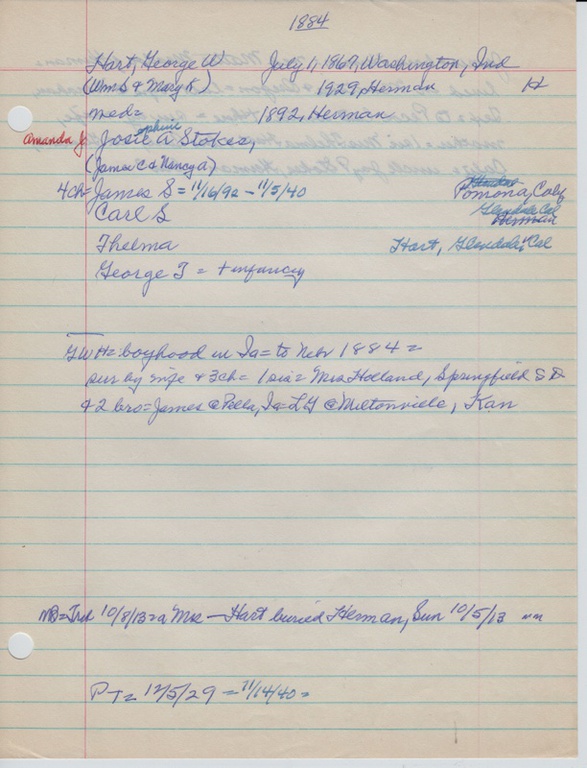 1884
Hart, George W July 1, 1867, Washington, Ind
(Wm S & Mary K) 1929, Herman H
med= 1892, Herman
Amanda J Josie A Stokes,
phine
(James C & Nancy A)
4ch= James S = 11/16/92 - 11/5/40 Pomona, Calif
Carl S Glendale Cal
Herman
Thelma Hart, Glendale, Cal
George T = + infancy
GWH= boyhood in Ia= to Nebr 1884=
sur by wife & 3ch= 1 sis= Mrs Holland, Springfield S D
& 2 bro= James @ Pella, Ia= L G @ Miltonville, Kan
10/8/13= a Mrs — Hart buried Herman, Sun 10/5/13
PT= 12/5/29 = 11/14/40=